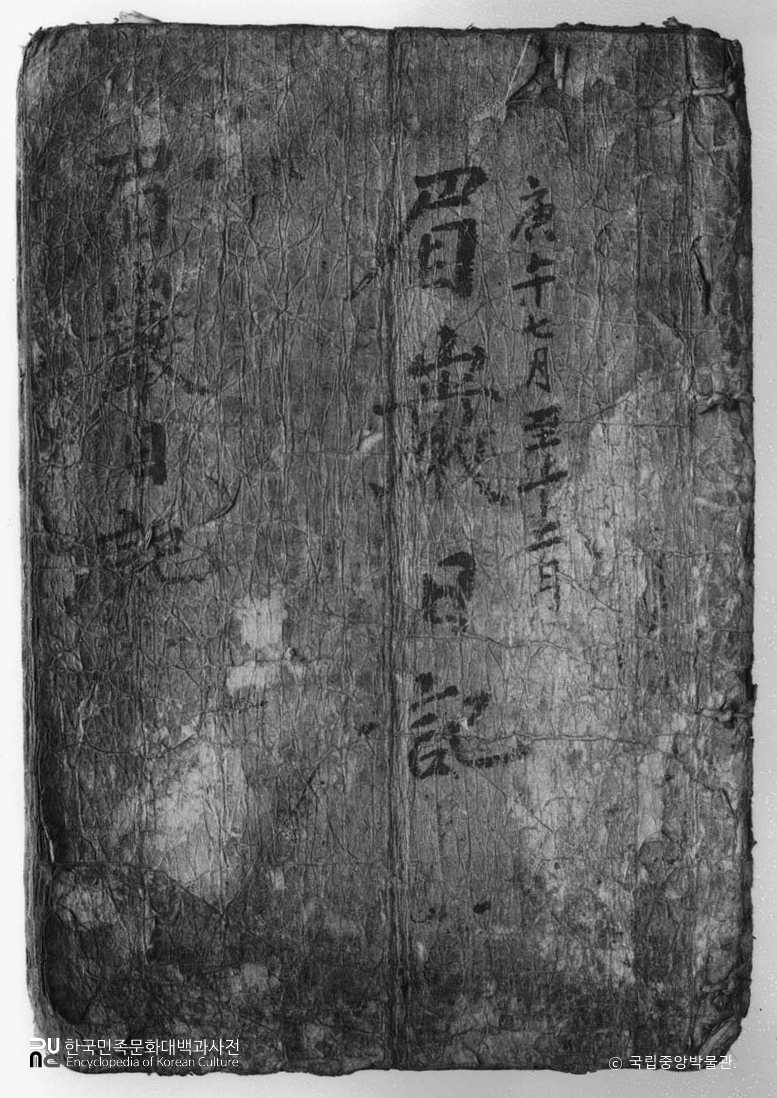 庚午七月至十二月
眉巖日記
眉巖日記
한국민족문화대백과사전
Encyclopedia of Korean Culture
© 국립중앙박물관